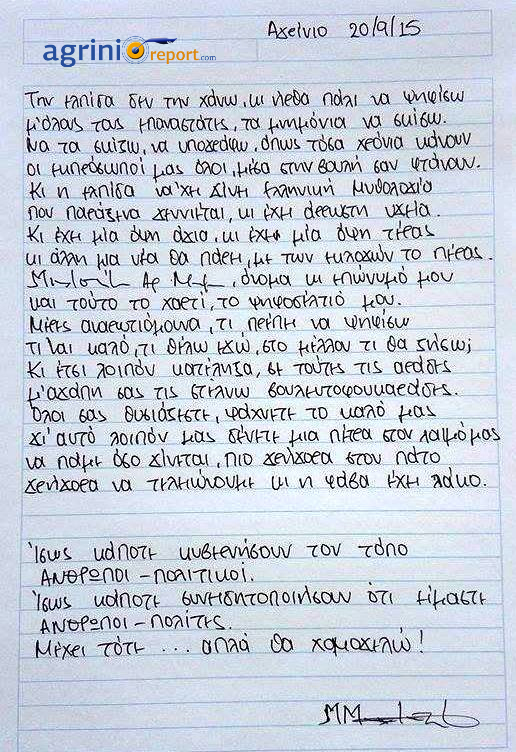 agrinioreport.com
Αγρίνιο 20/9/15
Την ελπίδα δεν την χάνω, κι ήρθα πάλι να ψηφίσω
μ' όλους τους επαναστάτες, τα μνημόνια να σκίσω.
Να τα σκίσω, να υπογράφω, όπως τόσα χρόνια κάνουν
οι εκπρόσωποί μας όλοι, μέσα στην βουλή σαν φτάνουν.
Κι η ελπίδα να 'χει γίνει Ελληνική Μυθολογία
που παράξενα γεννιέται, κι έχει άρρωστη υγεία.
Κι έχει μία όψη άγια, κι έχει μία όψη τέρας
κι άλλη μια νέα θα πάρει, με των εκλογών το πέρας.
όνομα κι επώνυμό μου
και τούτο το χαρτί, το ψηφοδέλτιό μου.
Μέρες αναρωτιόμουνα, τι πρέπει να ψηφίσω
τι 'ναι καλό, τι θέλω εγώ, στο μέλλον τι θα ζήσω;
Κι έτσι λοιπόν κατέληξα, σε τούτες τις αράδες
μ' αγάπη σας τις στέλνω βουλευτοφουκαράδες.
Όλοι σας θυσιάζεστε, ψάχνετε το καλό μας
γι' αυτό λοιπόν μας δένετε μια πέτρα στον λαιμό μας
να πάμε όσο γίνεται, πιο γρήγορα στον πάτο
γρήγορα να τελειώνουμε κι η φάβα έχει λάκο.
Ίσως κάποτε κυβερνήσουν τον τόπο
ΑΝΘΡΩΠΟΙ - ΠΟΛΙΤΙΚΟΙ.
Ίσως κάποτε συνειδητοποιήσουν ότι είμαστε
ΑΝΘΡΩΠΟΙ - ΠΟΛΙΤΕΣ.
Μέχρι τότε ... απλά θα χαμογελώ!